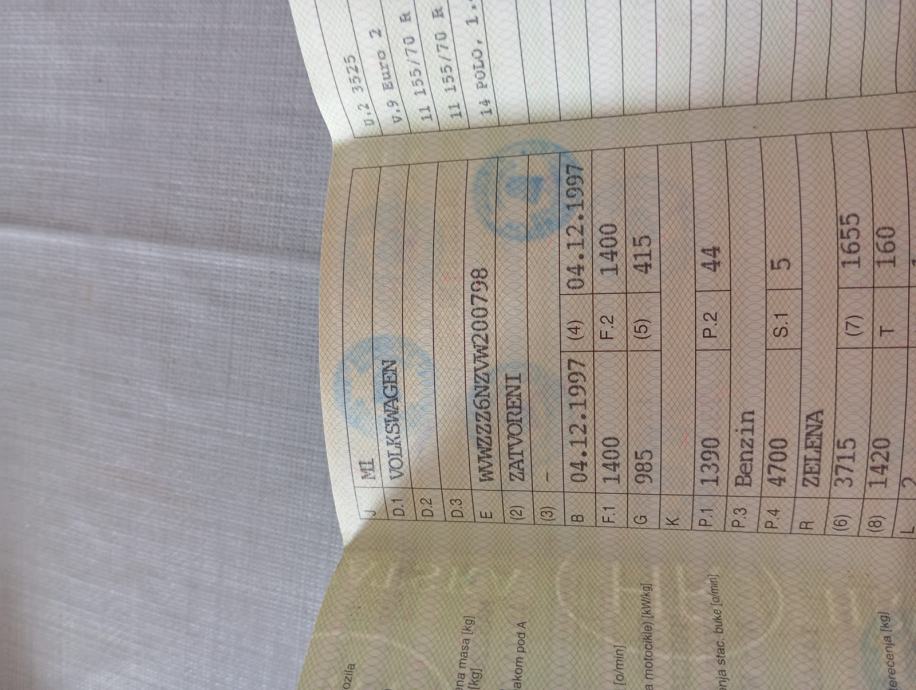 D.2 3525
V.9 Euro 2
11 155/70 R
11 155/70 R
14 POLO, 1.
J M1
D.1 VOLKSWAGEN
D.2
D.3
E WVWZZZ6NZVW200798
(2) ZATVORENI
(3) –
B 04.12.1997 (4) 04.12.1997
F.1 1400 F.2 1400
G 985 (5) 415
K
P.1 1390 P.2 44
P.3 Benzin
P.4 4700 S.1 5
R ZELENA
(6) 3715 (7) 1655
(8) 1420 T 160
L
ozila
na masa [kg]
[kg]
akom pod A
[o/min]
a motocikle) [kW/kg]
nja stac. buke [o/min]
erećenja [kg]